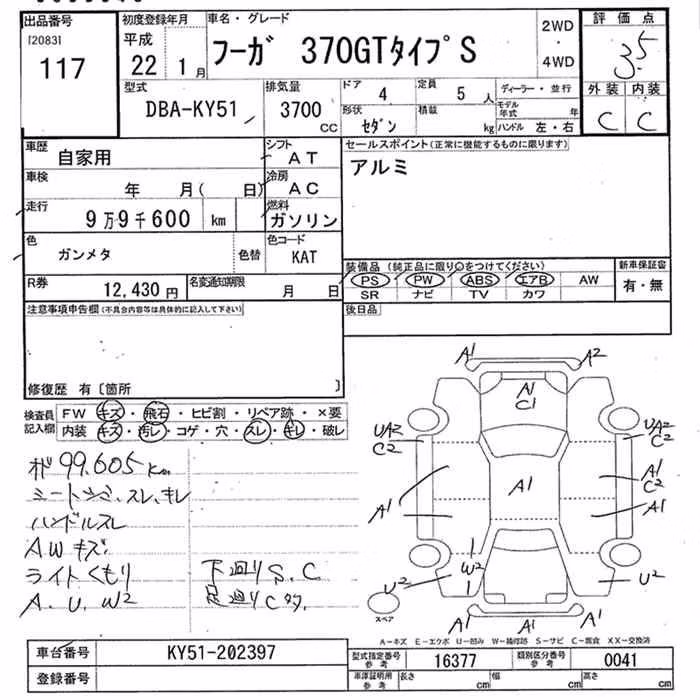 出品番号
[2083]
117
初度登録年月
平成
22 1月
車名・グレード
フーガ 370GTタイプS
2WD
・
4WD
評価点
3.5
外装 内装
C C
型式
DBA-KY51
排気量
3700
CC
ドア
4
定員
5人
形状
セダン
積載
kg
ディーラー・並行
モデル年式 年
ハンドル 左・右
車歴
自家用
シフト
AT
車検
年 月( 日)
冷房
AC
走行
9万9千600 km
燃料
ガソリン
色
ガンメタ
色替
色コード
KAT
R券
12,430円
名変通知期限
月 日
セールスポイント(正常に機能するものに限ります)
アルミ
装備品(純正品に限り○をつけてください)
PS PW ABS エアB AW
SR ナビ TV カワ
新車保証書
有・無
後日品
注意事項申告欄(不具合内容等は具体的に記入して下さい)
修復歴 有〔箇所 〕
検査員記入欄
FW キズ・飛石・ヒビ割・リペア跡・×要
内装 キズ・汚レ・コゲ・穴・スレ・キレ・破レ
99,605km
シートシミ、スレ、キレ
ハンドルスレ
AWキズ
ライトくもり
A.U.W2
下廻りS.C
足廻りCタ
A1 A2
A1
C1
UA2
C2
UA2
C2
A1
C2
A1
A1
A1
W2
U2
U2
スペア
A1 A1 A1
A-キズ E-エクボ U-凹み W-補修跡 S-サビ C-腐食 XX-交換済
車台番号 KY51-202397
登録番号
型式指定番号 参考 16377
類別区分番号 参考 0041
車庫証明用 参考 長さ cm 幅 cm 高さ cm